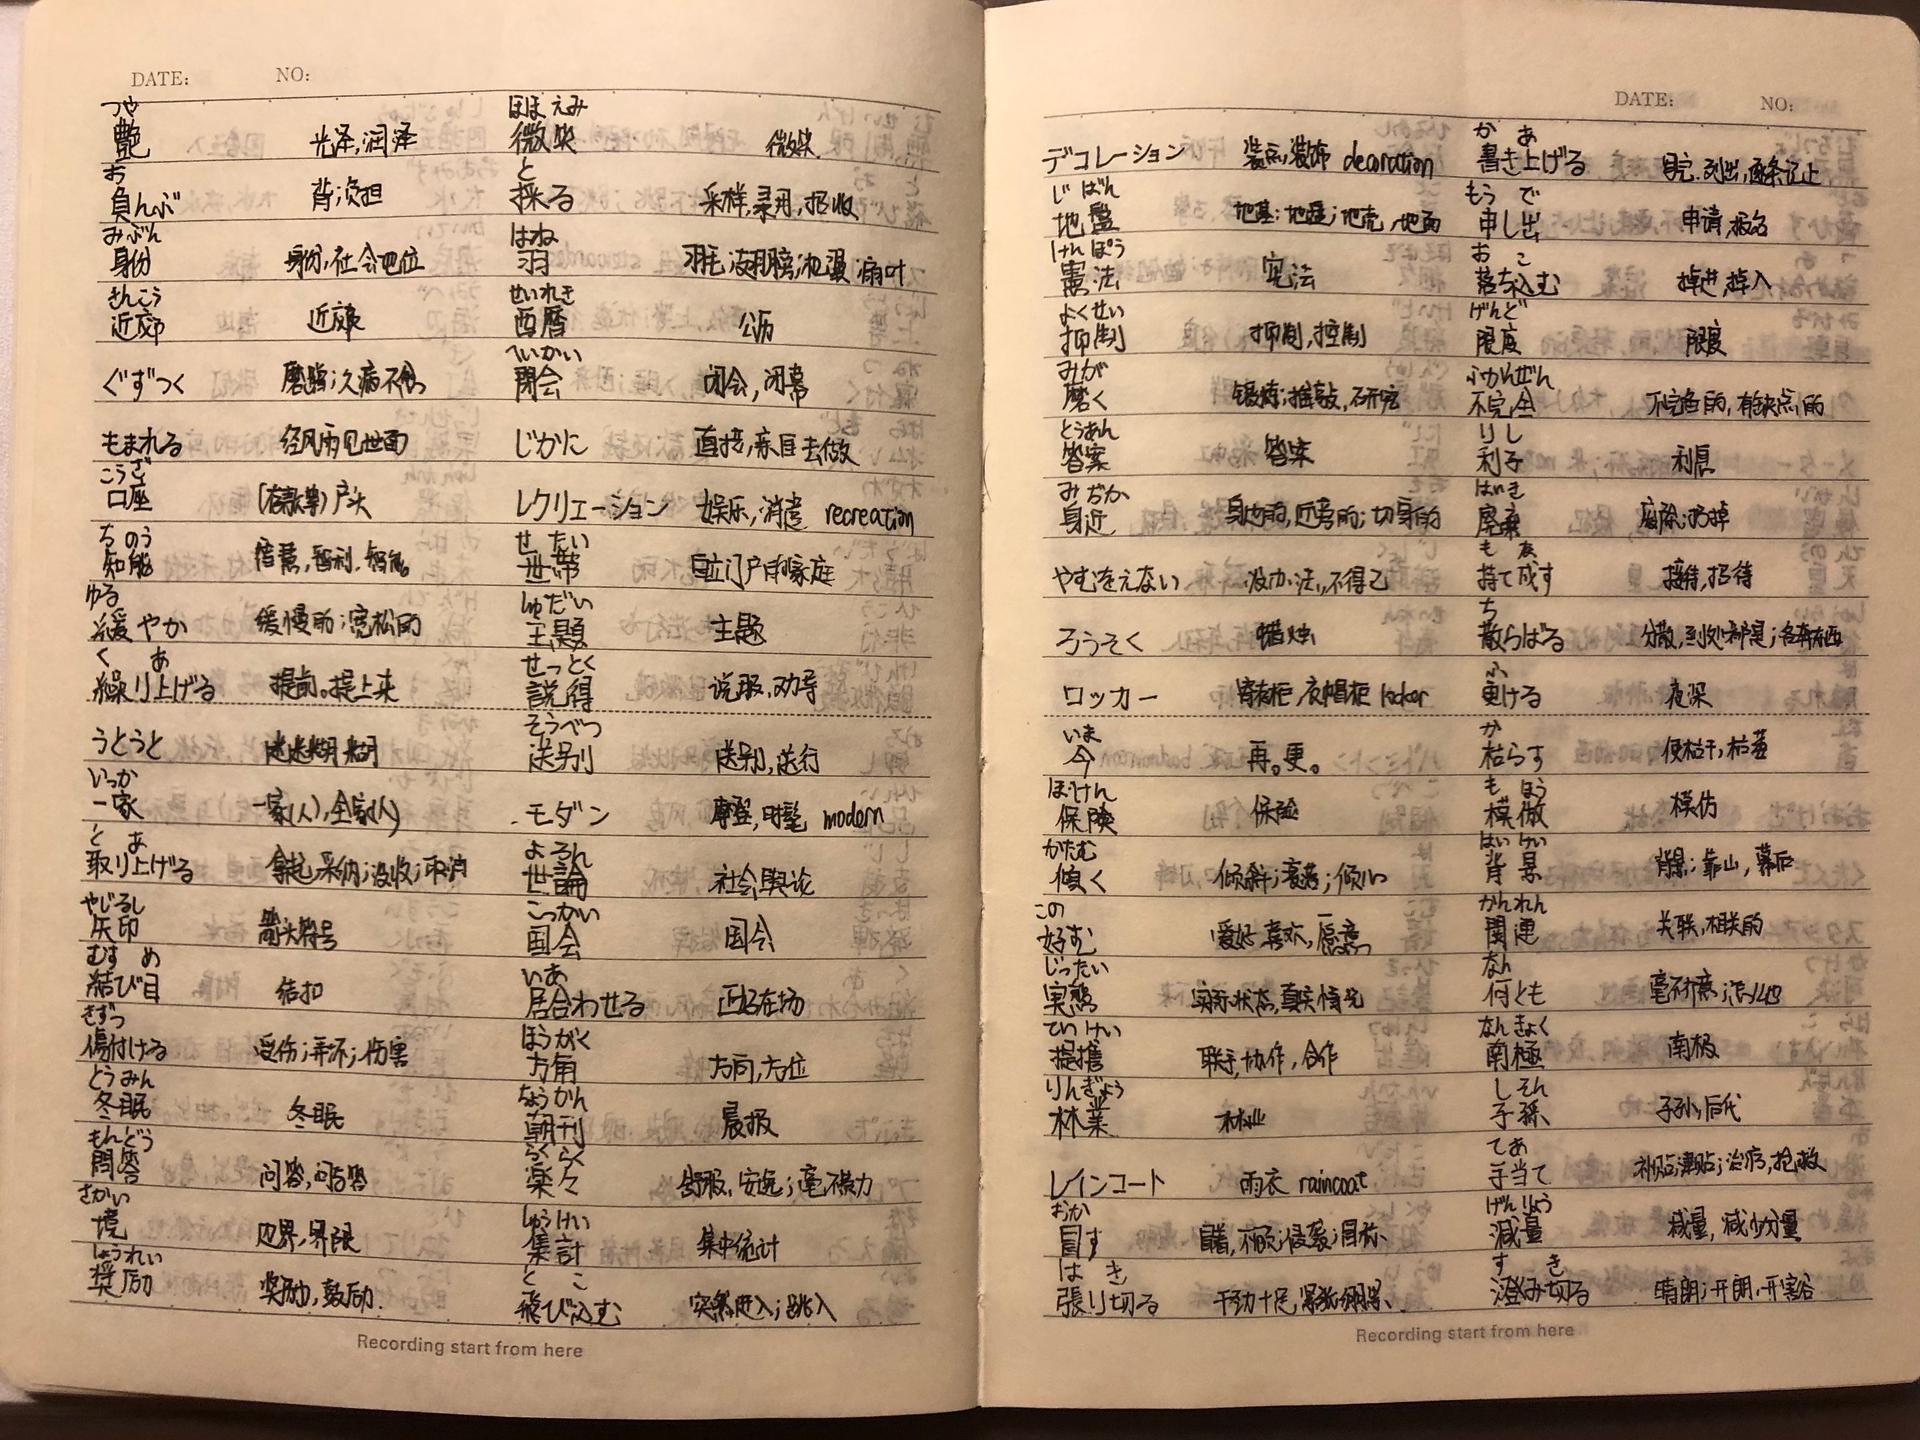 DATE: NO:
つや ほほえみ
艶 光泽,润泽 微笑 微笑
お と
負んぶ 背;负担 採る 采样,录用,招收
みぶん はね
身份 身份,社会地位 羽 羽毛;翅膀;扇叶
きんこう せいれき
近郊 近郊 西暦 公历
へいかい
ぐずつく 磨蹭;久病不愈 閉会 闭会,闭幕
もまれる 经风雨见世面 じかに 直接,亲自去做
こうざ
口座 (存款等)户头 レクリエーション 娱乐,消遣 recreation
ちのう せたい
知能 智慧,智力,智能 世帯 自立门户的家庭
ゆる しゅだい
緩やか 缓慢的;宽松的 主題 主题
く あ せっとく
繰り上げる 提前。提上来 説得 说服,劝导
そうべつ
うとうと 迷迷糊糊 送别 送别,送行
いっか
一家 一家(人),全家(人) モダン 摩登,时髦 modern
と あ よろん
取り上げる 拿起;采纳;没收;取消 世論 社会舆论
やじるし こっかい
矢印 箭头符号 国会 国会
むすめ いあ
結び目 结扣 居合わせる 正好在场
きずつ ほうがく
傷付ける 受伤;弄坏;伤害 方角 方向,方位
とうみん ちょうかん
冬眠 冬眠 朝刊 晨报
もんどう らくらく
問答 问答,问与答 楽々 舒服,安逸;毫不费力
さかい しゅうけい
境 边界,界限 集計 集中统计
しょうれい と こ
奨励 奖励,鼓励. 飛び込む 突然进入;跳入
Recording start from here
DATE: NO:
か あ
デコレーション 装点,装饰 decoration 書き上げる 写完.列出,逐条记上
じばん もう で
地盤 地基;地盘;地壳,地面 申し出 申请,报名
けんぽう お こ
憲法 宪法 落ち込む 掉进,掉入
よくせい げんど
抑制 抑制,控制 限度 限度
みが ふかんぜん
磨く 锻炼;推敲,研究 不完全 不完全的,有缺点的
とうあん りし
答案 答案 利子 利息
みぢか はいき
身近 身边的,近旁的;切身的 廃棄 废除;扔掉
も な
やむをえない 没办法,不得已 持て成す 接待,招待
ち
ろうそく 蜡烛 散らばる 分散,到处都是;各奔东西
ふ
ロッカー 寄存柜,衣帽柜 locker 更ける 夜深
いま か
今 再。更。 枯らす 使枯干,枯萎
ほけん もほう
保険 保险 模倣 模仿
かたむ はいけい
傾く 倾斜;衰落;倾心 背景 背景;靠山,幕后
この かんれん
好む 爱好,喜欢,愿意 関連 关联,相关的
じったい なん
実態 实际状态,真实情况 何とも
ていけい なんきょく
提携 联手,协作,合作 南極 南极
りんぎょう しそん
林業 林业 子孫 子孙,后代
てあ
レインコート 雨衣 raincoat 手当て 补贴,津贴;治疗,抢救
おか げんりょう
冒す 冒着,不顾;侵袭;冒称、 減量 减量,减少分量
は き す き
張り切る 干劲十足,紧张绷紧、 澄み切る 晴朗;开朗,开豁
Recording start from here